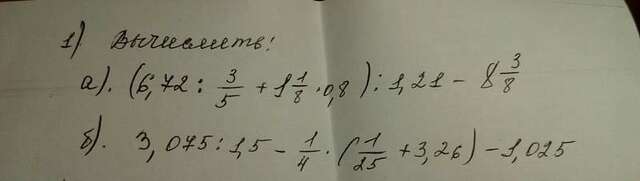 1) Вычислить:
а). (6,72 : 3/5 + 1 1/8 · 0,8) : 1,21 - 8 3/8
б). 3,075 : 1,5 - 1/4 · (1/25 + 3,26) - 1,025